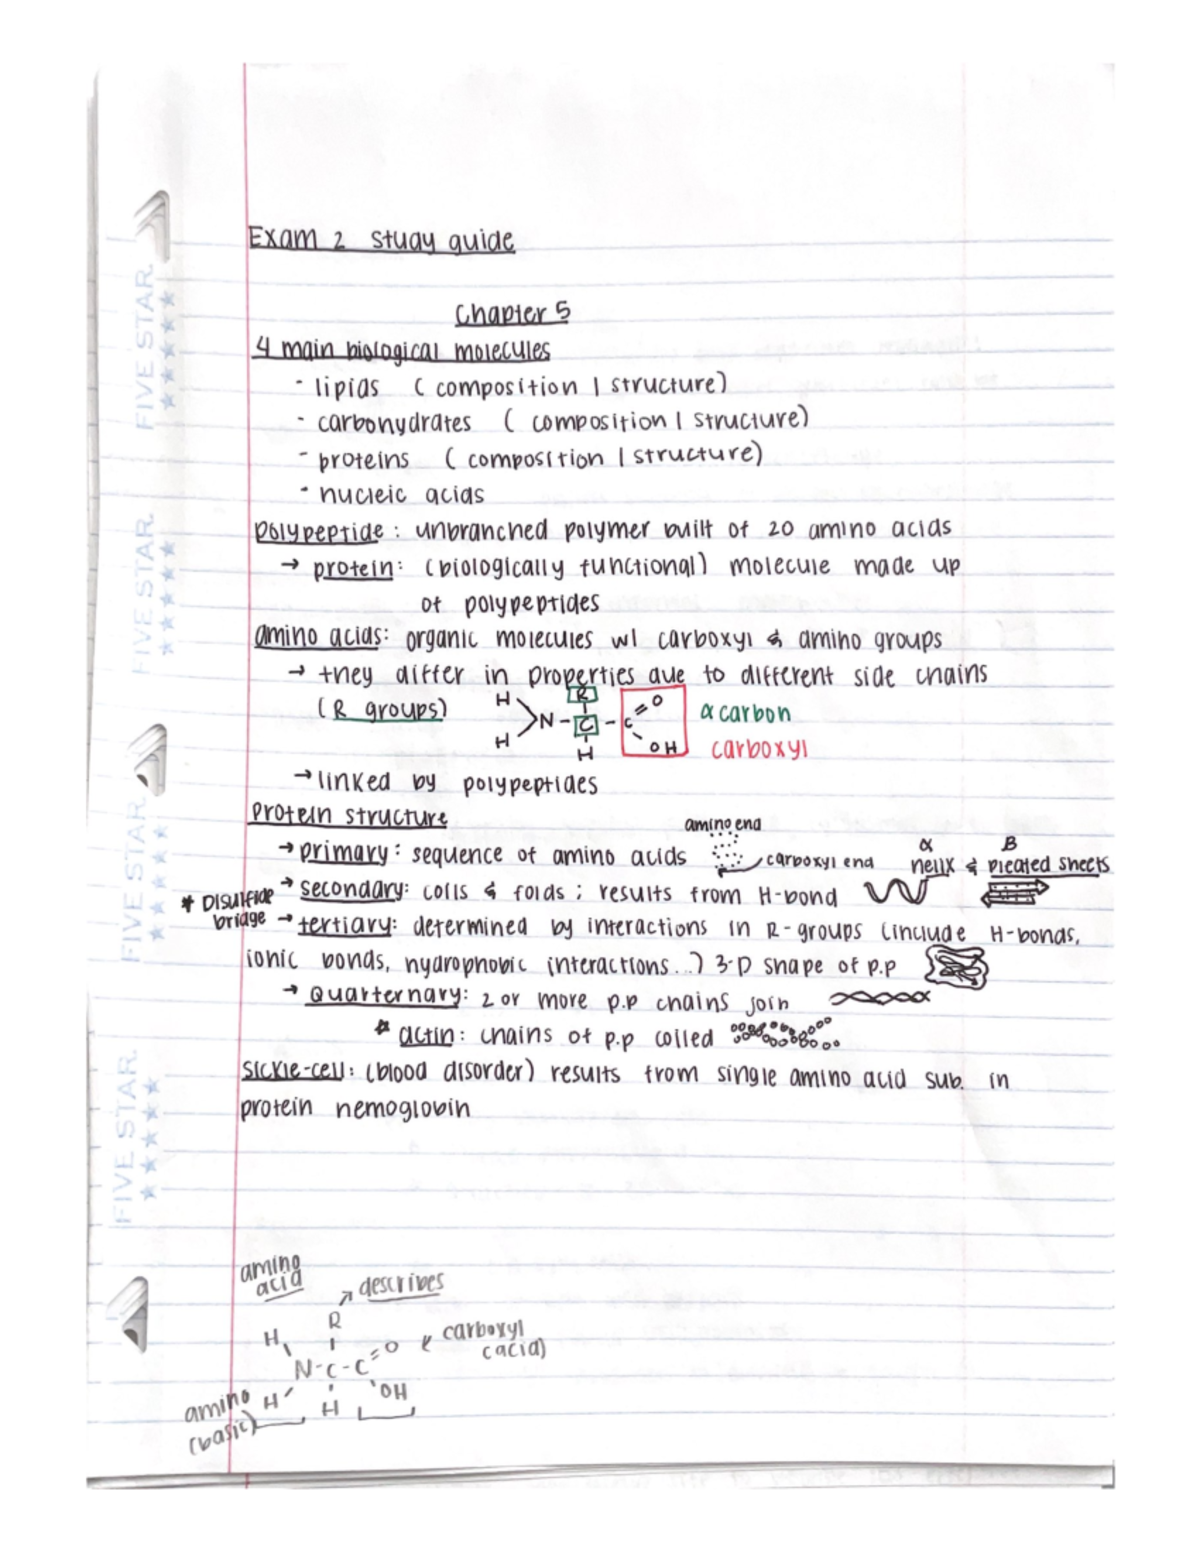 Exam 2 study guide
Chapter 5
4 main biological molecules
- lipids (composition / structure)
- carbohydrates (composition / structure)
- proteins (composition / structure)
- nucleic acids
polypeptide: unbranched polymer built of 20 amino acids
→ protein: (biologically functional) molecule made up
of polypeptides
amino acids: organic molecules w/ carboxyl & amino groups
→ they differ in properties due to different side chains
(R groups)
H
H
N - C - C
R
H
O
OH
α carbon
carboxyl
→ linked by polypeptides
Protein structure
amino end
→ primary: sequence of amino acids
carboxyl end
α helix & B pleated sheets
* Disulfide bridge
→ secondary: coils & folds ; results from H-bond
→ tertiary: determined by interactions in R-groups (include H-bonds,
ionic bonds, hydrophobic interactions...) 3-D shape of p.p
→ Quarternary: 2 or more p.p chains join
* actin: chains of p.p coiled
Sickle-cell: (blood disorder) results from single amino acid sub. in
protein hemoglobin
amino
acid
↗ describes
R
H
N - C - C
O
carboxyl
(acid)
H
H
OH
amino
(basic)
FIVE STAR
FIVE STAR
FIVE STAR
FIVE STAR